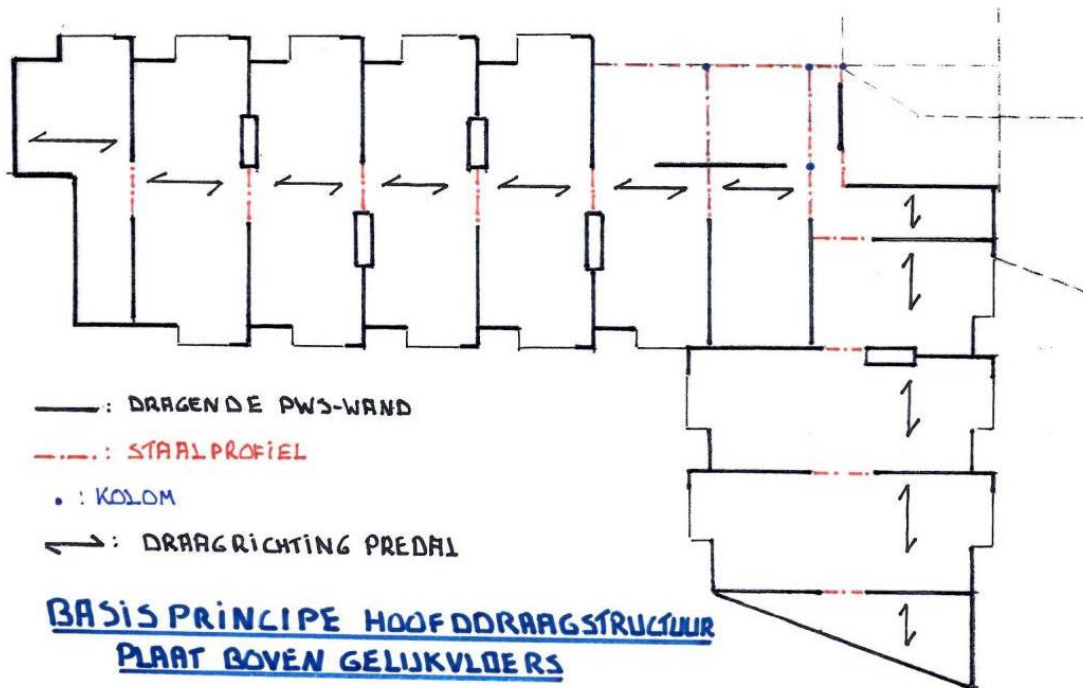 : DRAGENDE PWS-WAND
: STAALPROFIEL
: KOLOM
: DRAAGRICHTING PREDAL
BASISPRINCIPE HOOFDDRAAGSTRUCTUUR
PLAAT BOVEN GELIJKVLOERS